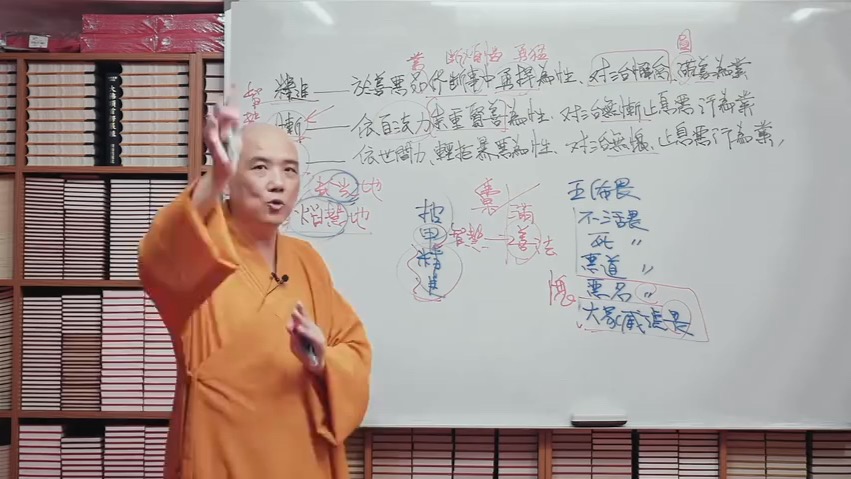 惡 斷煩惱 勇猛
圓
精進——於善惡品修斷事中勇捍為性、對治懈怠、滿善為業
慚——依自法力崇重賢善為性、對治無慚止息惡行為業
——依世間力、輕拒暴惡為性、對治無愧、止息惡行為業,
地
焰慧地
披甲精進
智慧——善法
滿
五怖畏
不活畏
死〃
惡道〃
惡名〃
大眾威德畏
愧